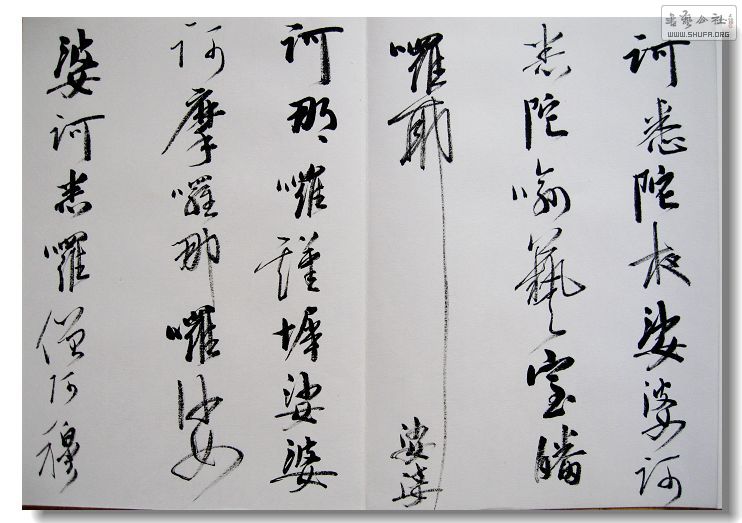 訶悉陀夜娑婆訶
悉陀喻藝室皤
囉耶娑婆
訶那囉謹墀娑婆
訶摩囉那囉娑
婆訶悉囉僧阿穆
书艺公社
WWW.SHUFA.ORG